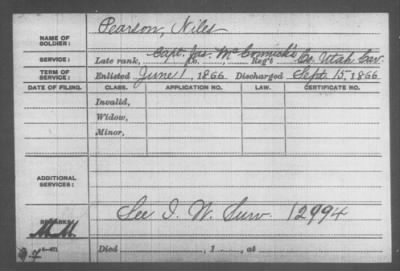 NAME OF SOLDIER: Pearson, Niles
SERVICE: Late rank, Capt. Jas. McCormick's Co. ......, Reg't Co. Utah Cav.
TERM OF SERVICE: Enlisted June 1, 1866 Discharged Sept. 15, 1866
DATE OF FILING. CLASS. APPLICATION NO. LAW. CERTIFICATE NO.
Invalid,
Widow,
Minor,
ADDITIONAL SERVICES:
See I. W. Surv. 12994
REMARKS:
M.M.
Died ........, 1 ......, at ........